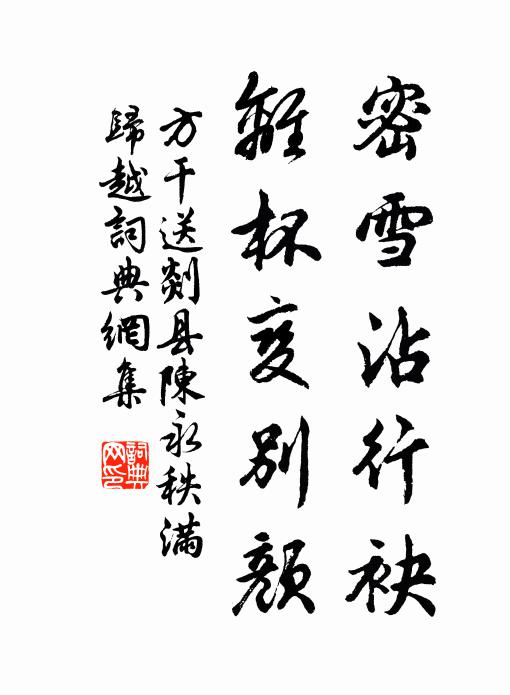 密雪沾行袂
離杯变別顔
方干送剡县陳永秩滿
歸越詞典網集
詞典网印